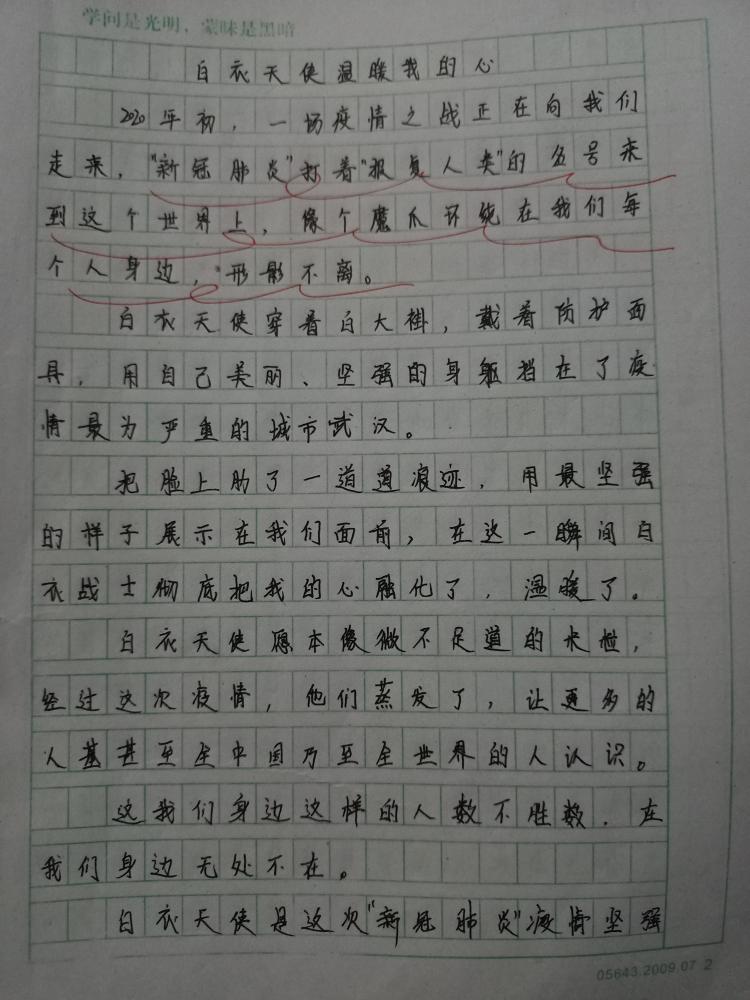 学问是光明，蒙昧是黑暗
白衣天使温暖我的心
2020年初，一场疫情之战正在向我们
走来，"新冠肺炎"打着"报复人类"的名号来
到这个世界上，像个魔爪环绕在我们每
个人身边，形影不离。
白衣天使穿着白大褂，戴着防护面
具，用自己美丽、坚强的身躯挡在了疫
情最为严重的城市武汉。
把脸上肋了一道道浪迹，用最坚强
的样子展示在我们面前，在这一瞬间白
衣战士彻底把我的心融化了，温暖了。
白衣天使愿本像微不足道的水粒，
经过这次疫情，他们蒸发了，让更多的
人甚至全中国乃至全世界的人认识。
这我们身边这样的人数不胜数，在
我们身边无处不在。
白衣天使是这次"新冠肺炎"疫情坚强
05643.2009.07 2